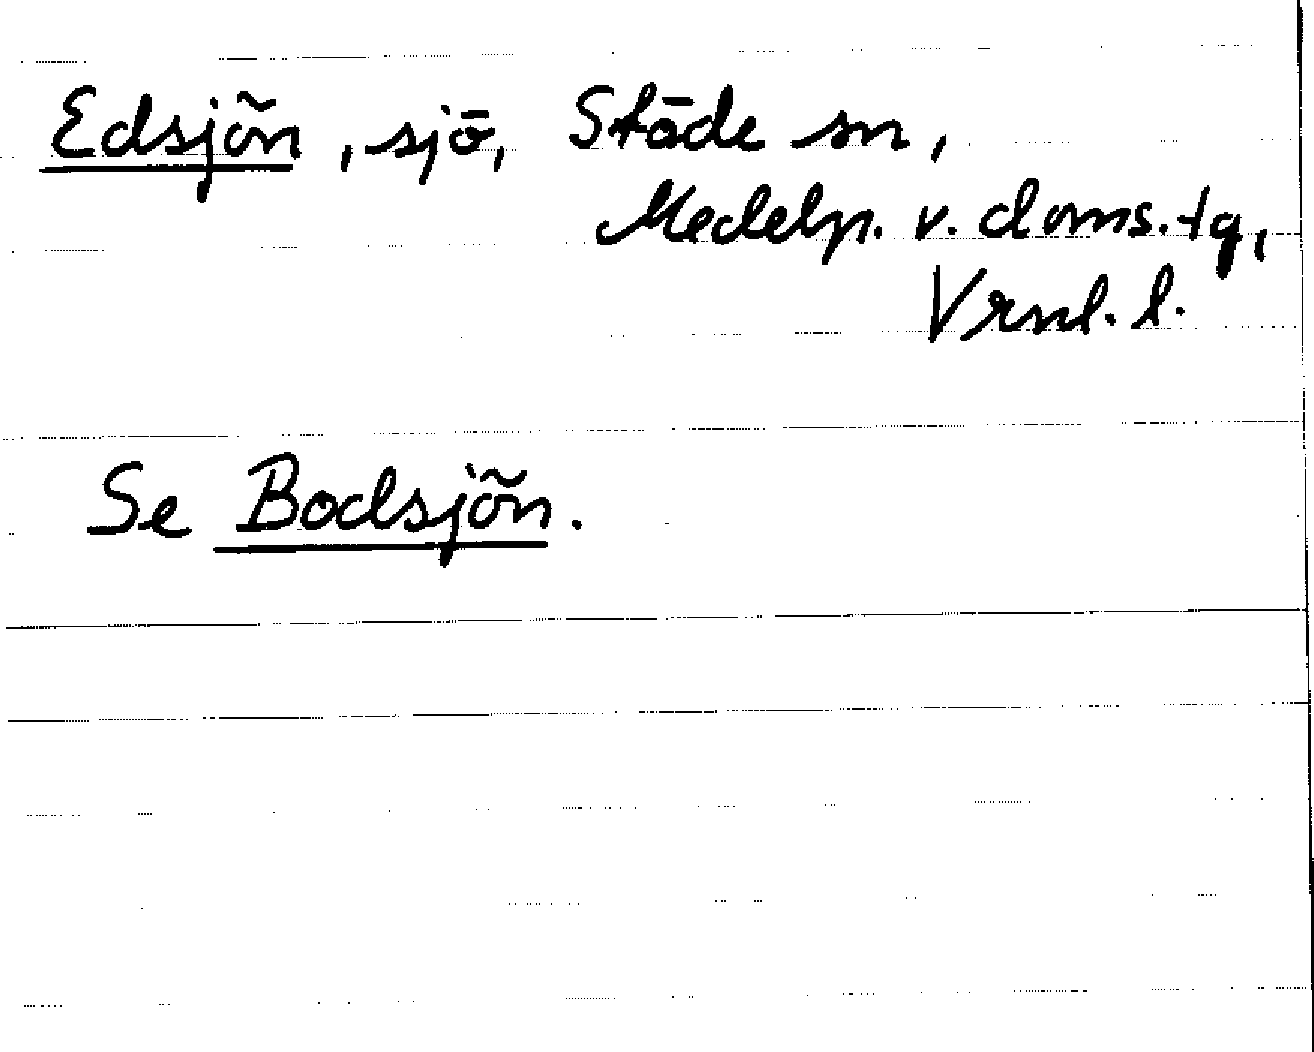 Edsjön, sjö, Stöde sn,
Medelp. v. doms.tg,
Vrnl. l.
Se Bodsjön.